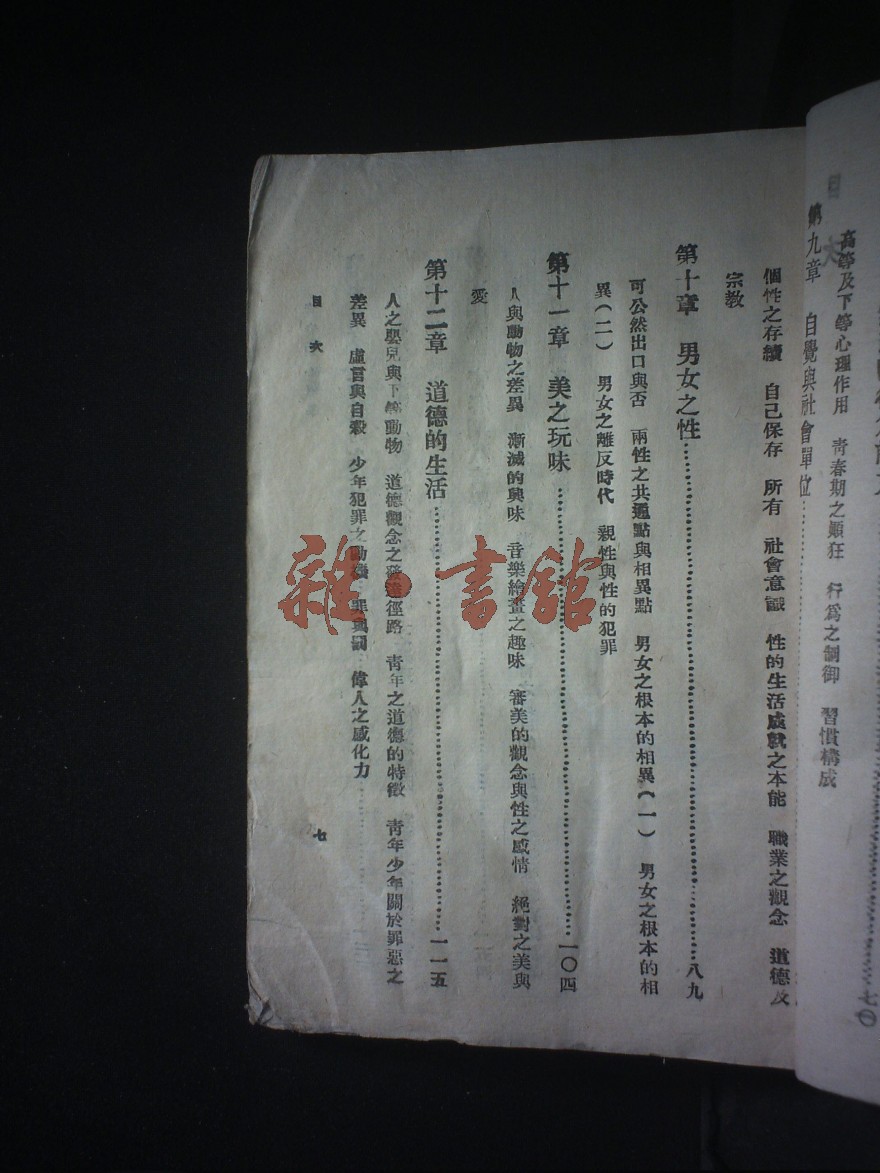 目次
高等及下等心理作用 青春期之顚狂 行爲之制御 習慣構成
七〇
第九章 自覺與社會單位
個性之存續 自己保存 所有 社會意識 性的生活成就之本能 職業之觀念 道德及
宗教
第十章 男女之性 八九
可公然出口與否 兩性之共通點與相異點 男女之根本的相異(一) 男女之根本的相
異(二) 男女之離反時代 親性與性的犯罪
第十一章 美之玩味 一〇四
人與動物之差異 漸滅的興味 音樂繪畫之趣味 審美的觀念與性之感情 絕對之美與
愛
第十二章 道德的生活 一一五
人之嬰兒與下等動物 道德觀念之發達徑路 靑年之道德的特徵 靑年少年關於罪惡之
差異 虛言與自殺 少年犯罪之動機 罪與罰 偉人之感化力
目次
七
雜·書館